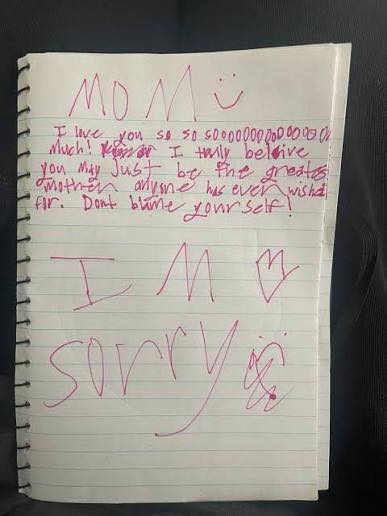 MOM
I love you so so sooooooooooooooo
much! I truly beleive
you may Just be the greates
mother anyone has ever wishe
for. Dont blame yourself!
I M
sorry